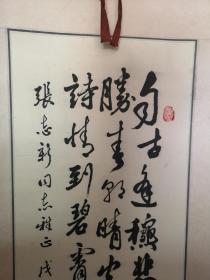 自古逢穐悲
勝春朝晴空
詩情到碧霄
張志新同志雅正 戊